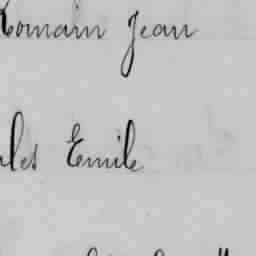 Romain Jean
les Emile